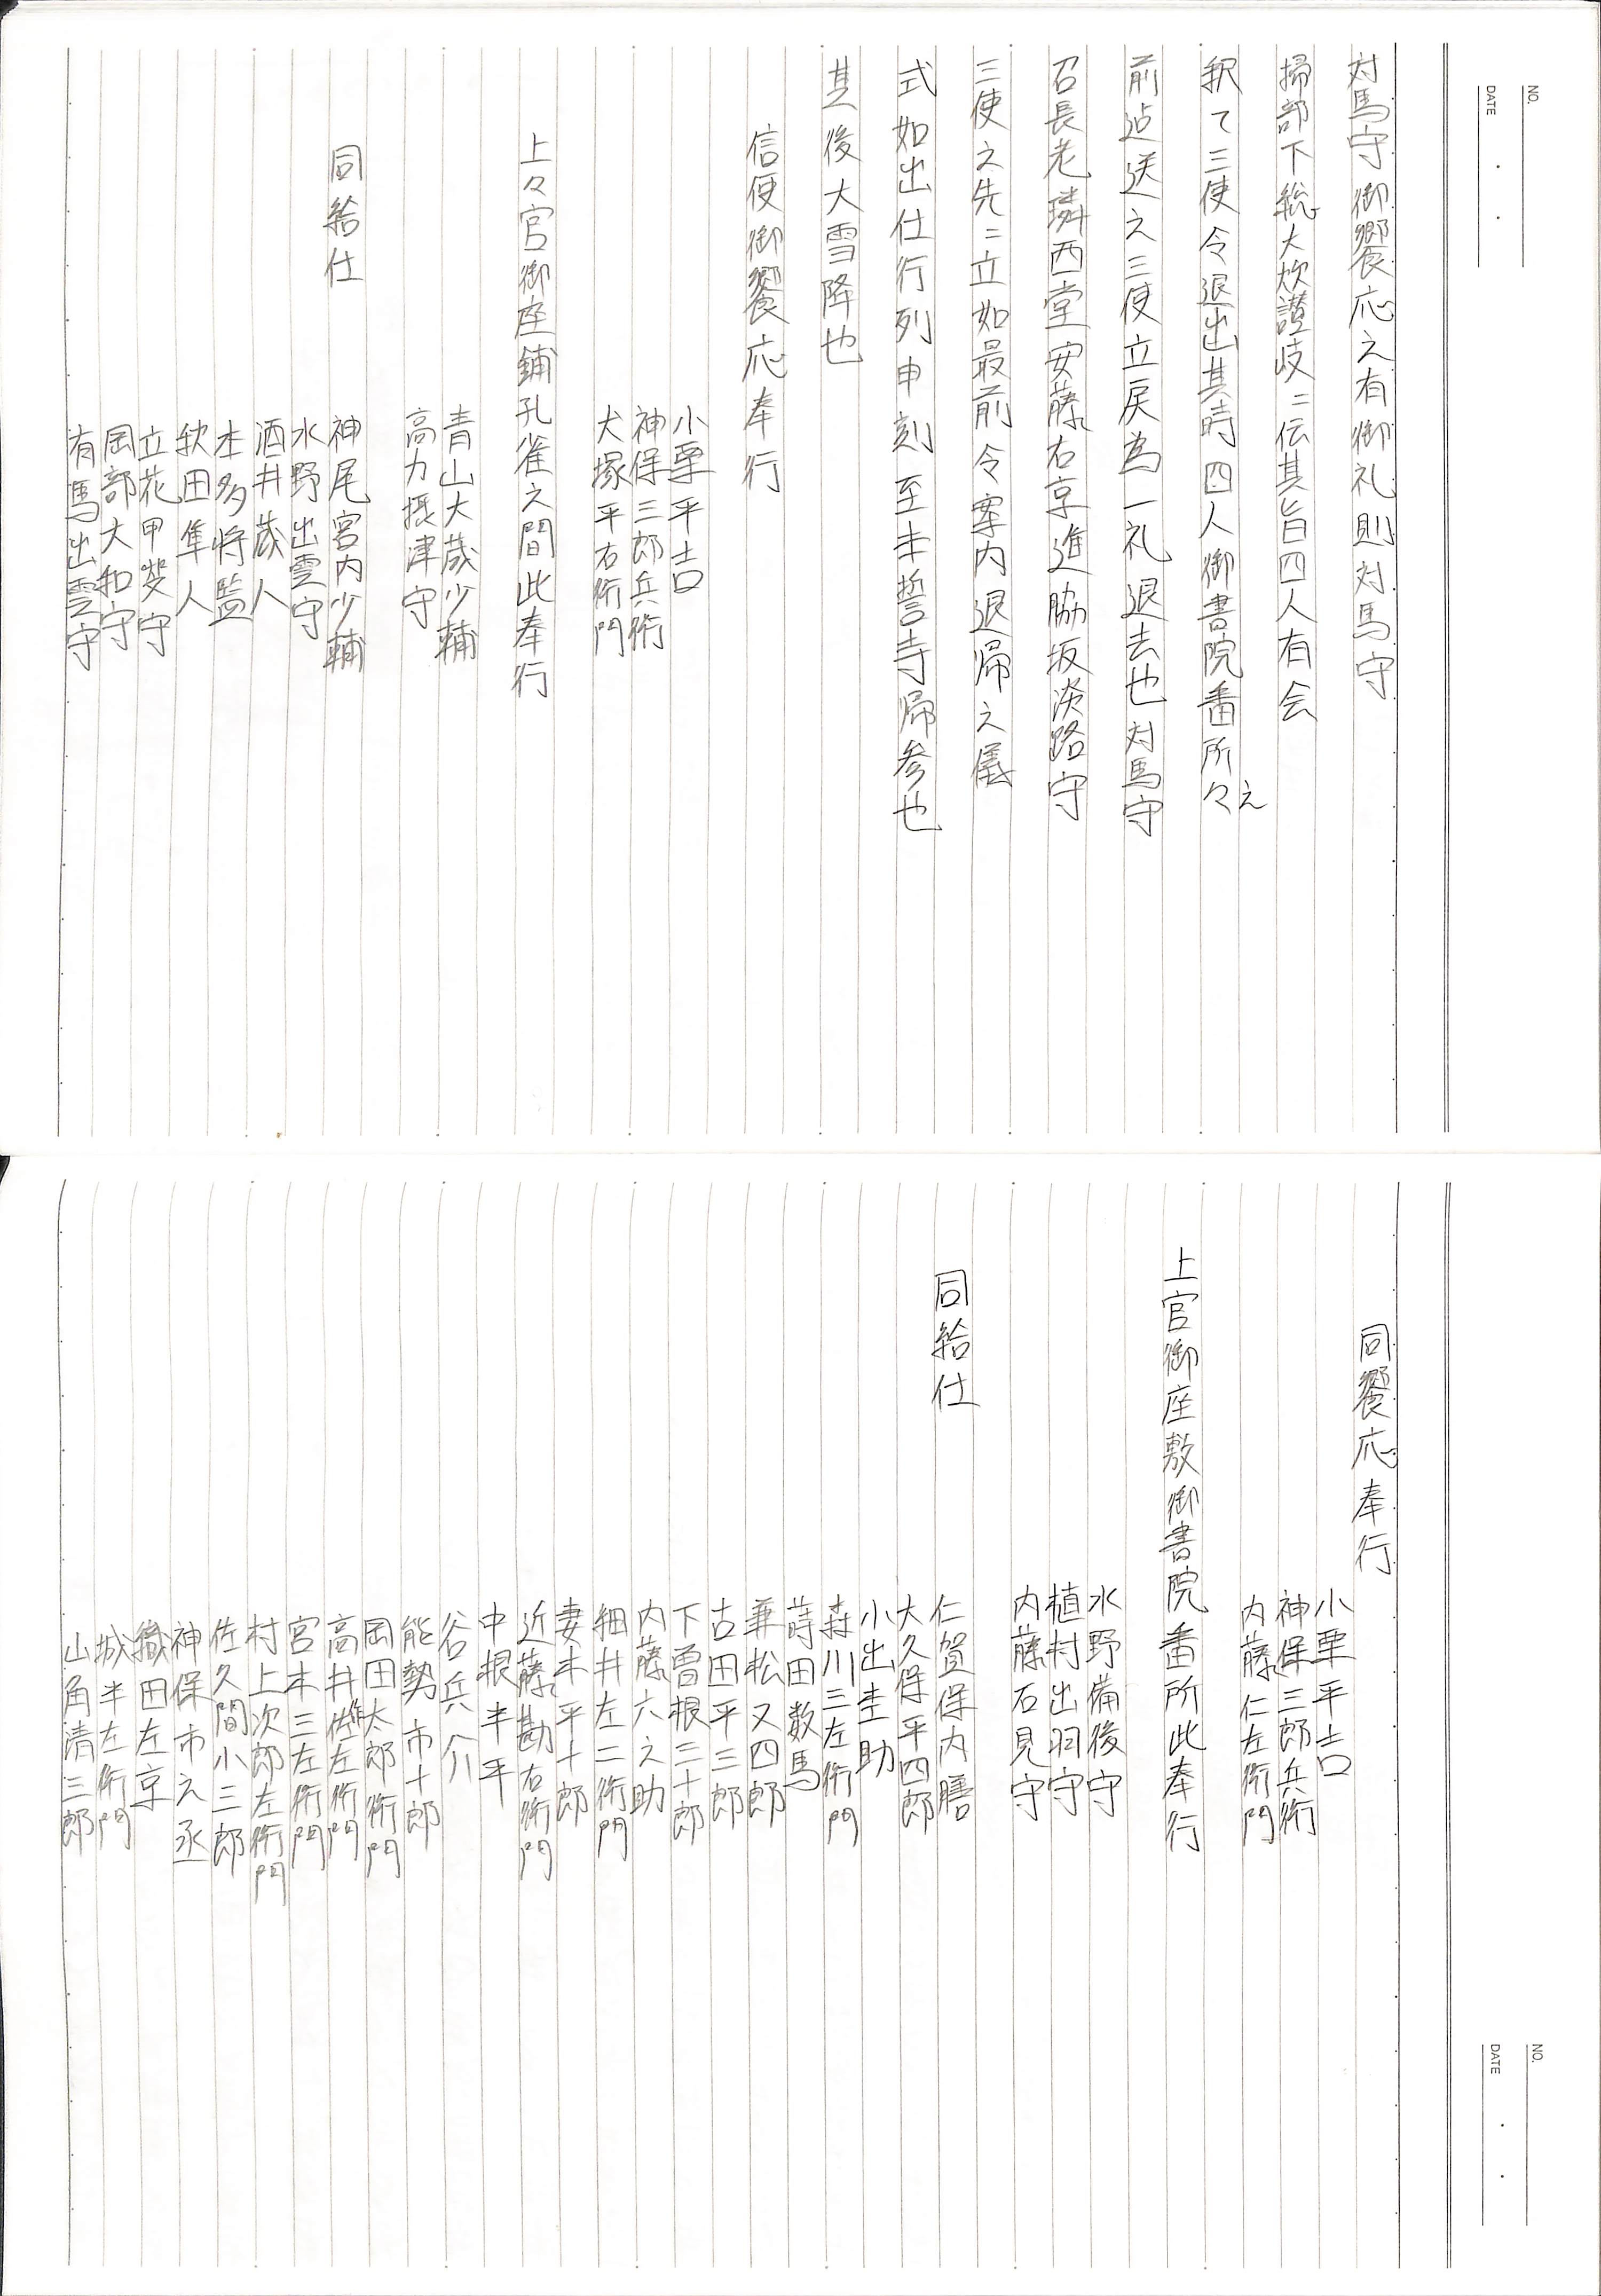 NO.
DATE
対馬守御饗応之有御礼則対馬守
掃部下総大炊讃岐ニ伝其旨四人有会
釈て三使令退出其時四人御書院番所々え
前迠送之三使立戻為一礼退去也対馬守
召長老璘西堂安藤右京進脇坂淡路守
三使之先ニ立如最前令案内退帰之儀
式如出仕行列申刻至本誓寺帰参也
其後大雪降也
信使御饗応奉行
小栗平吉
神保三郎兵衛
犬塚平右衛門
上々官御座鋪孔雀之間此奉行
青山大蔵少輔
高力摂津守
同給仕
神尾宮内少輔
水野出雲守
酒井蔵人
本多将監
秋田隼人
立花甲斐守
岡部大和守
有馬出雲守
NO.
DATE
同饗応奉行
小栗平吉
神保三郎兵衛
内藤仁左衛門
上官御座敷御書院番所此奉行
水野備後守
植村出羽守
内藤石見守
同給仕
仁賀保内膳
大久保平四郎
小出圭助
森川三左衛門
蒔田数馬
兼松又四郎
古田平三郎
下曽根三十郎
内藤六之助
細井左二衛門
妻木平十郎
近藤勘右衛門
中根半平
谷兵介
能勢市十郎
岡田太郎衛門
高井作左衛門
宮本三左衛門
村上次郎左衛門
佐久間小三郎
神保市之丞
嶽田左京
城半左衛門
山角清三郎